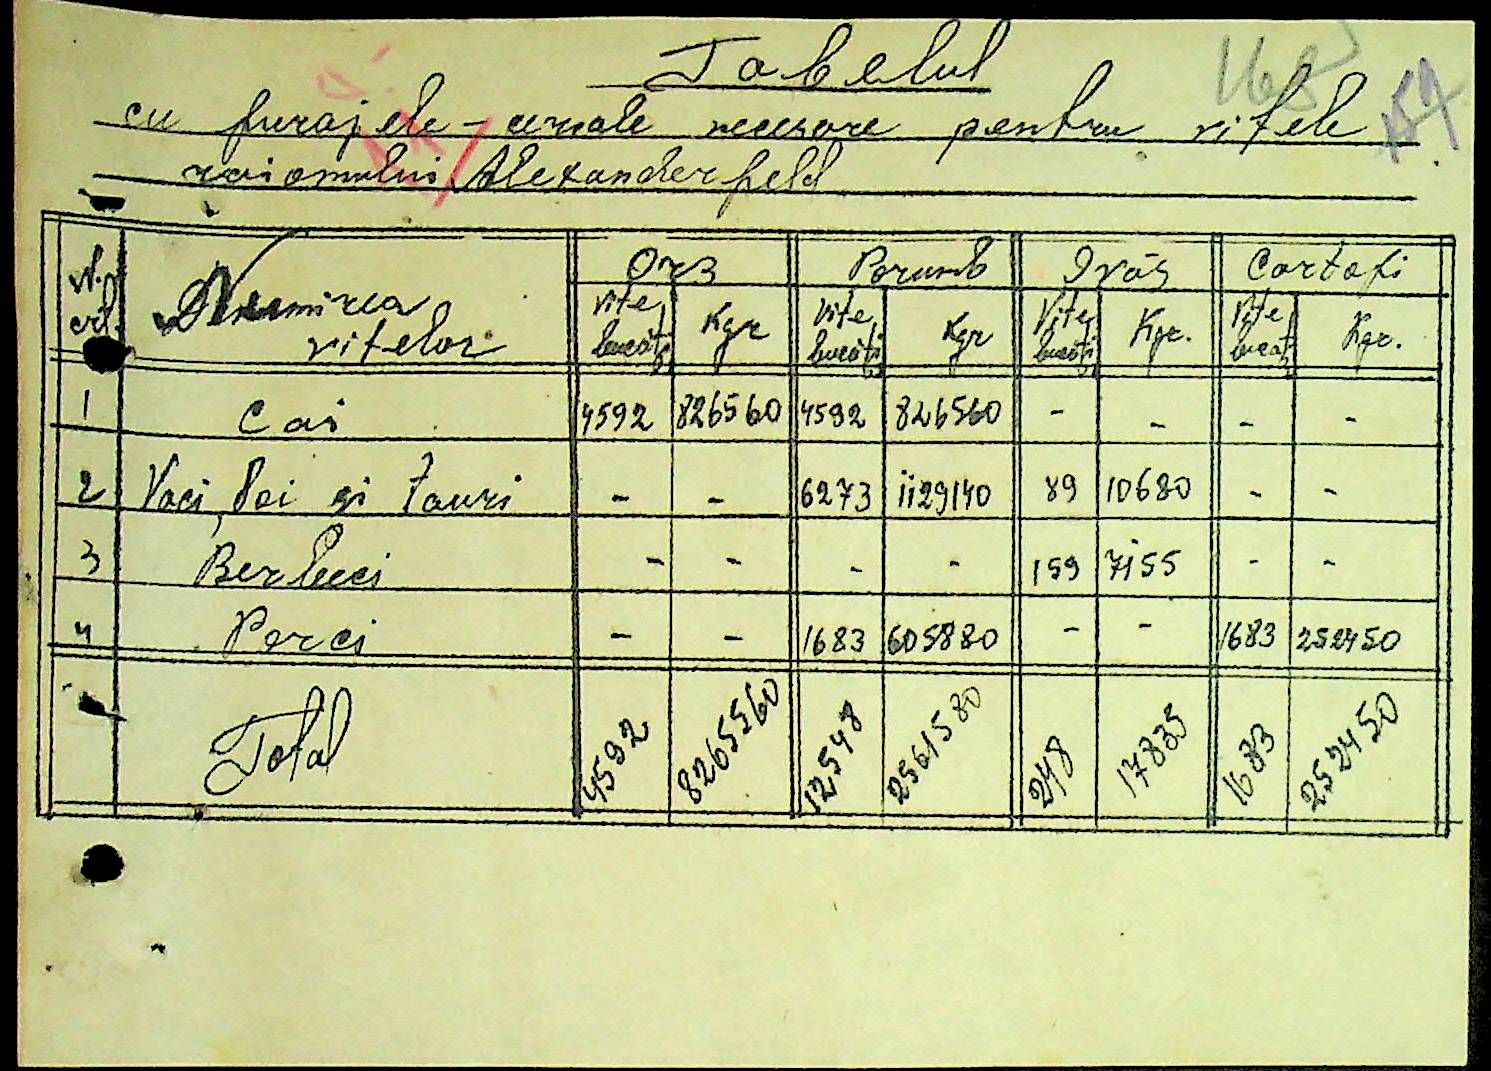 Tabelul
cu furajele-cereale necesare pentru vitele
raionului Alexanderfeld
168
157
N. crt. Denumirea vitelor Orz Porumb Ovăs Cartofi
Vite bucăți Kgr Vite bucăți Kgr Vite bucăți Kgr. Vite bucăți Kgr.
1 Cai 4592 826560 4592 826560 - - - -
2 Vaci, boi și tauri - - 6273 1129140 89 10680 - -
3 Berbeci - - - - 159 7155 - -
4 Porci - - 1683 605880 - - 1683 252450
Total 4592 8265560 12548 2561580 248 17835 1683 252450